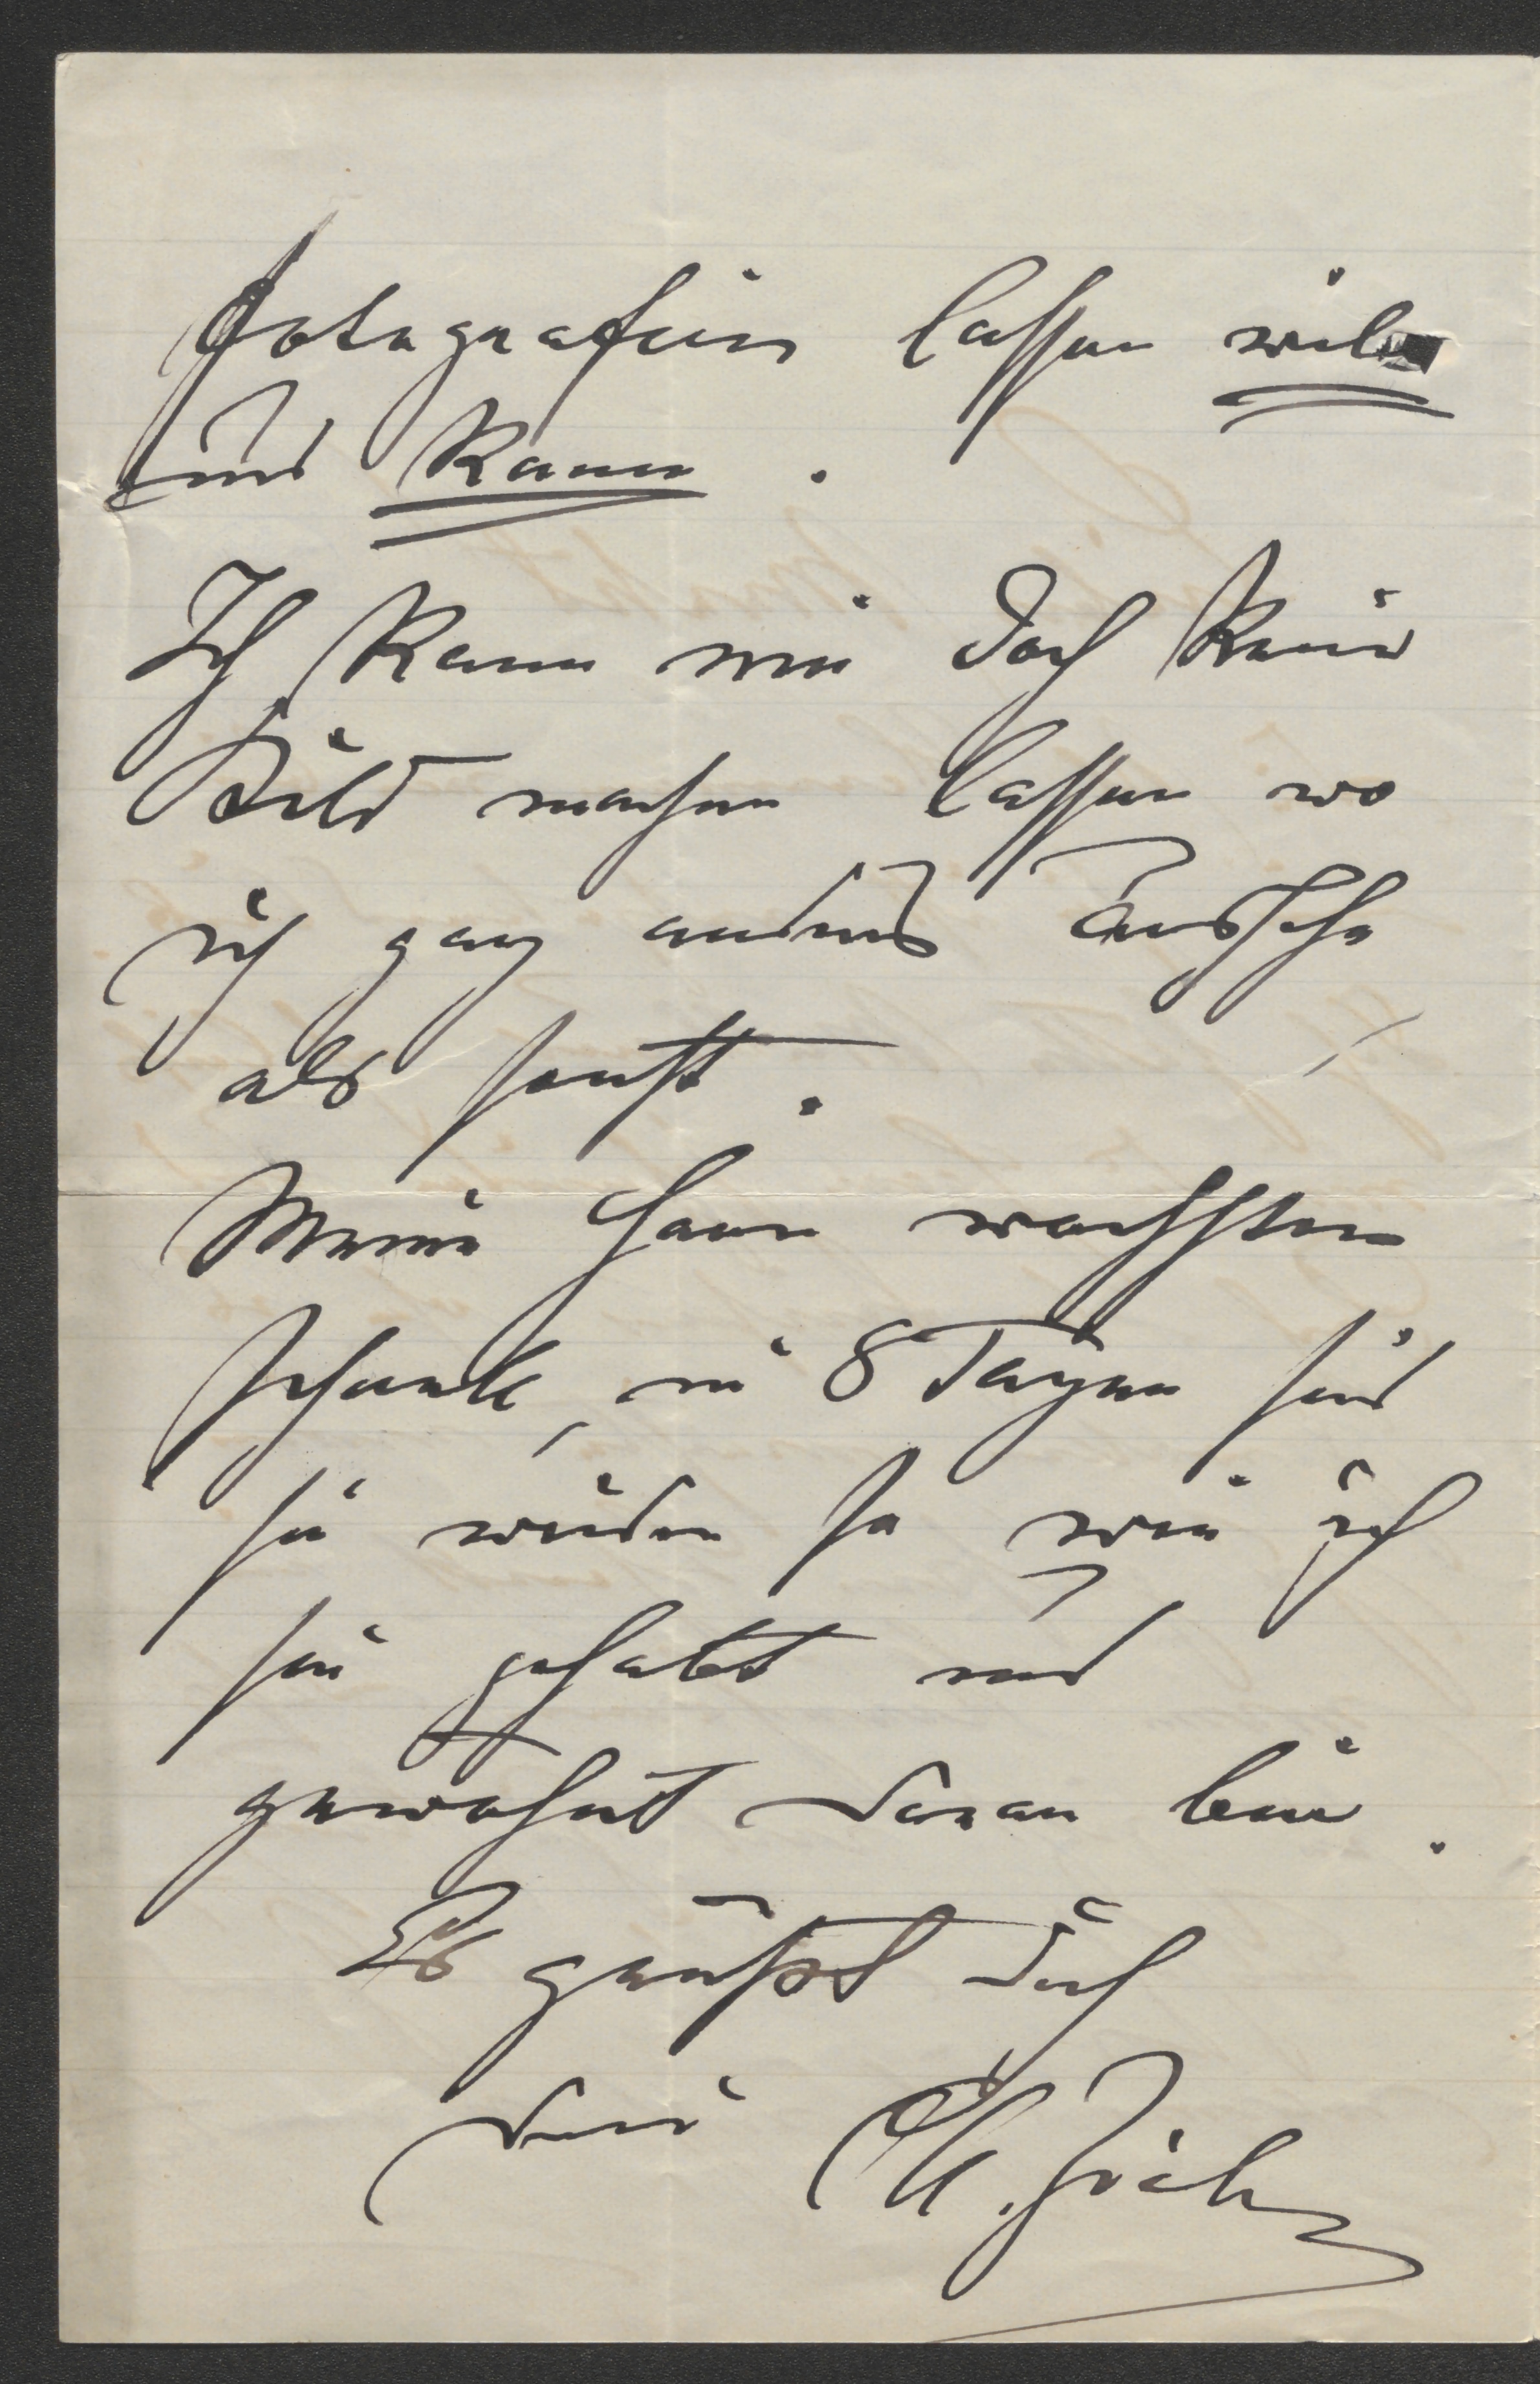 fotografieren lassen will
und kann.
Ich kann mir doch kein
Bild machen lassen wo
ich ganz anders aussehe
als sonst.
Meine Haare wachsten
schnell, in 8 Tagen sind
sie wieder so wie ich
sie gehabt und
gewohnt daran bin.
Es grüßt Dich
Dein